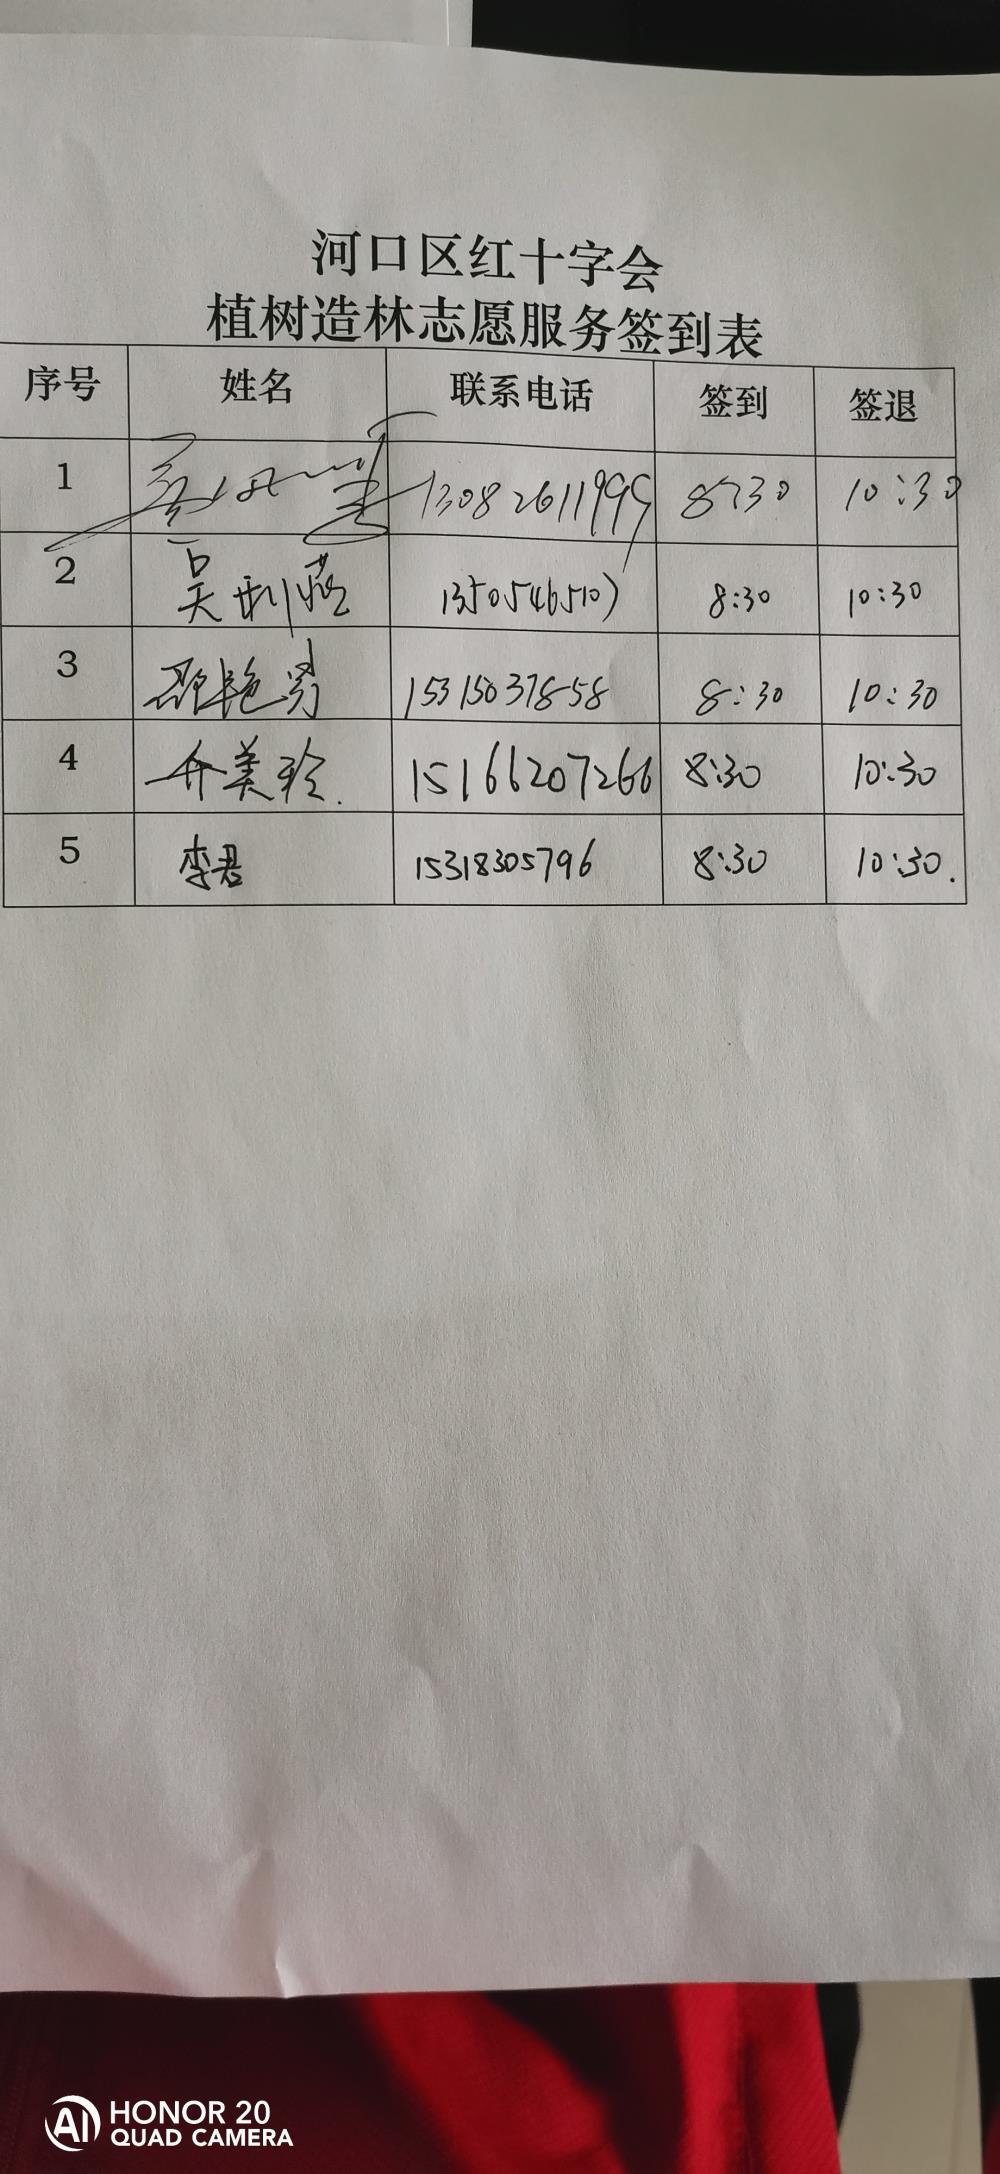 河口区红十字会
植树造林志愿服务签到表
序号 姓名 联系电话 签到 签退
1 13082611999 8:30 10:30
2 吴利燕 1350546510 8:30 10:30
3 邵艳芳 15315037858 8:30 10:30
4 乔美玲. 15166207266 8:30 10:30
5 李君 15318305796 8:30 10:30.
AI HONOR 20
QUAD CAMERA